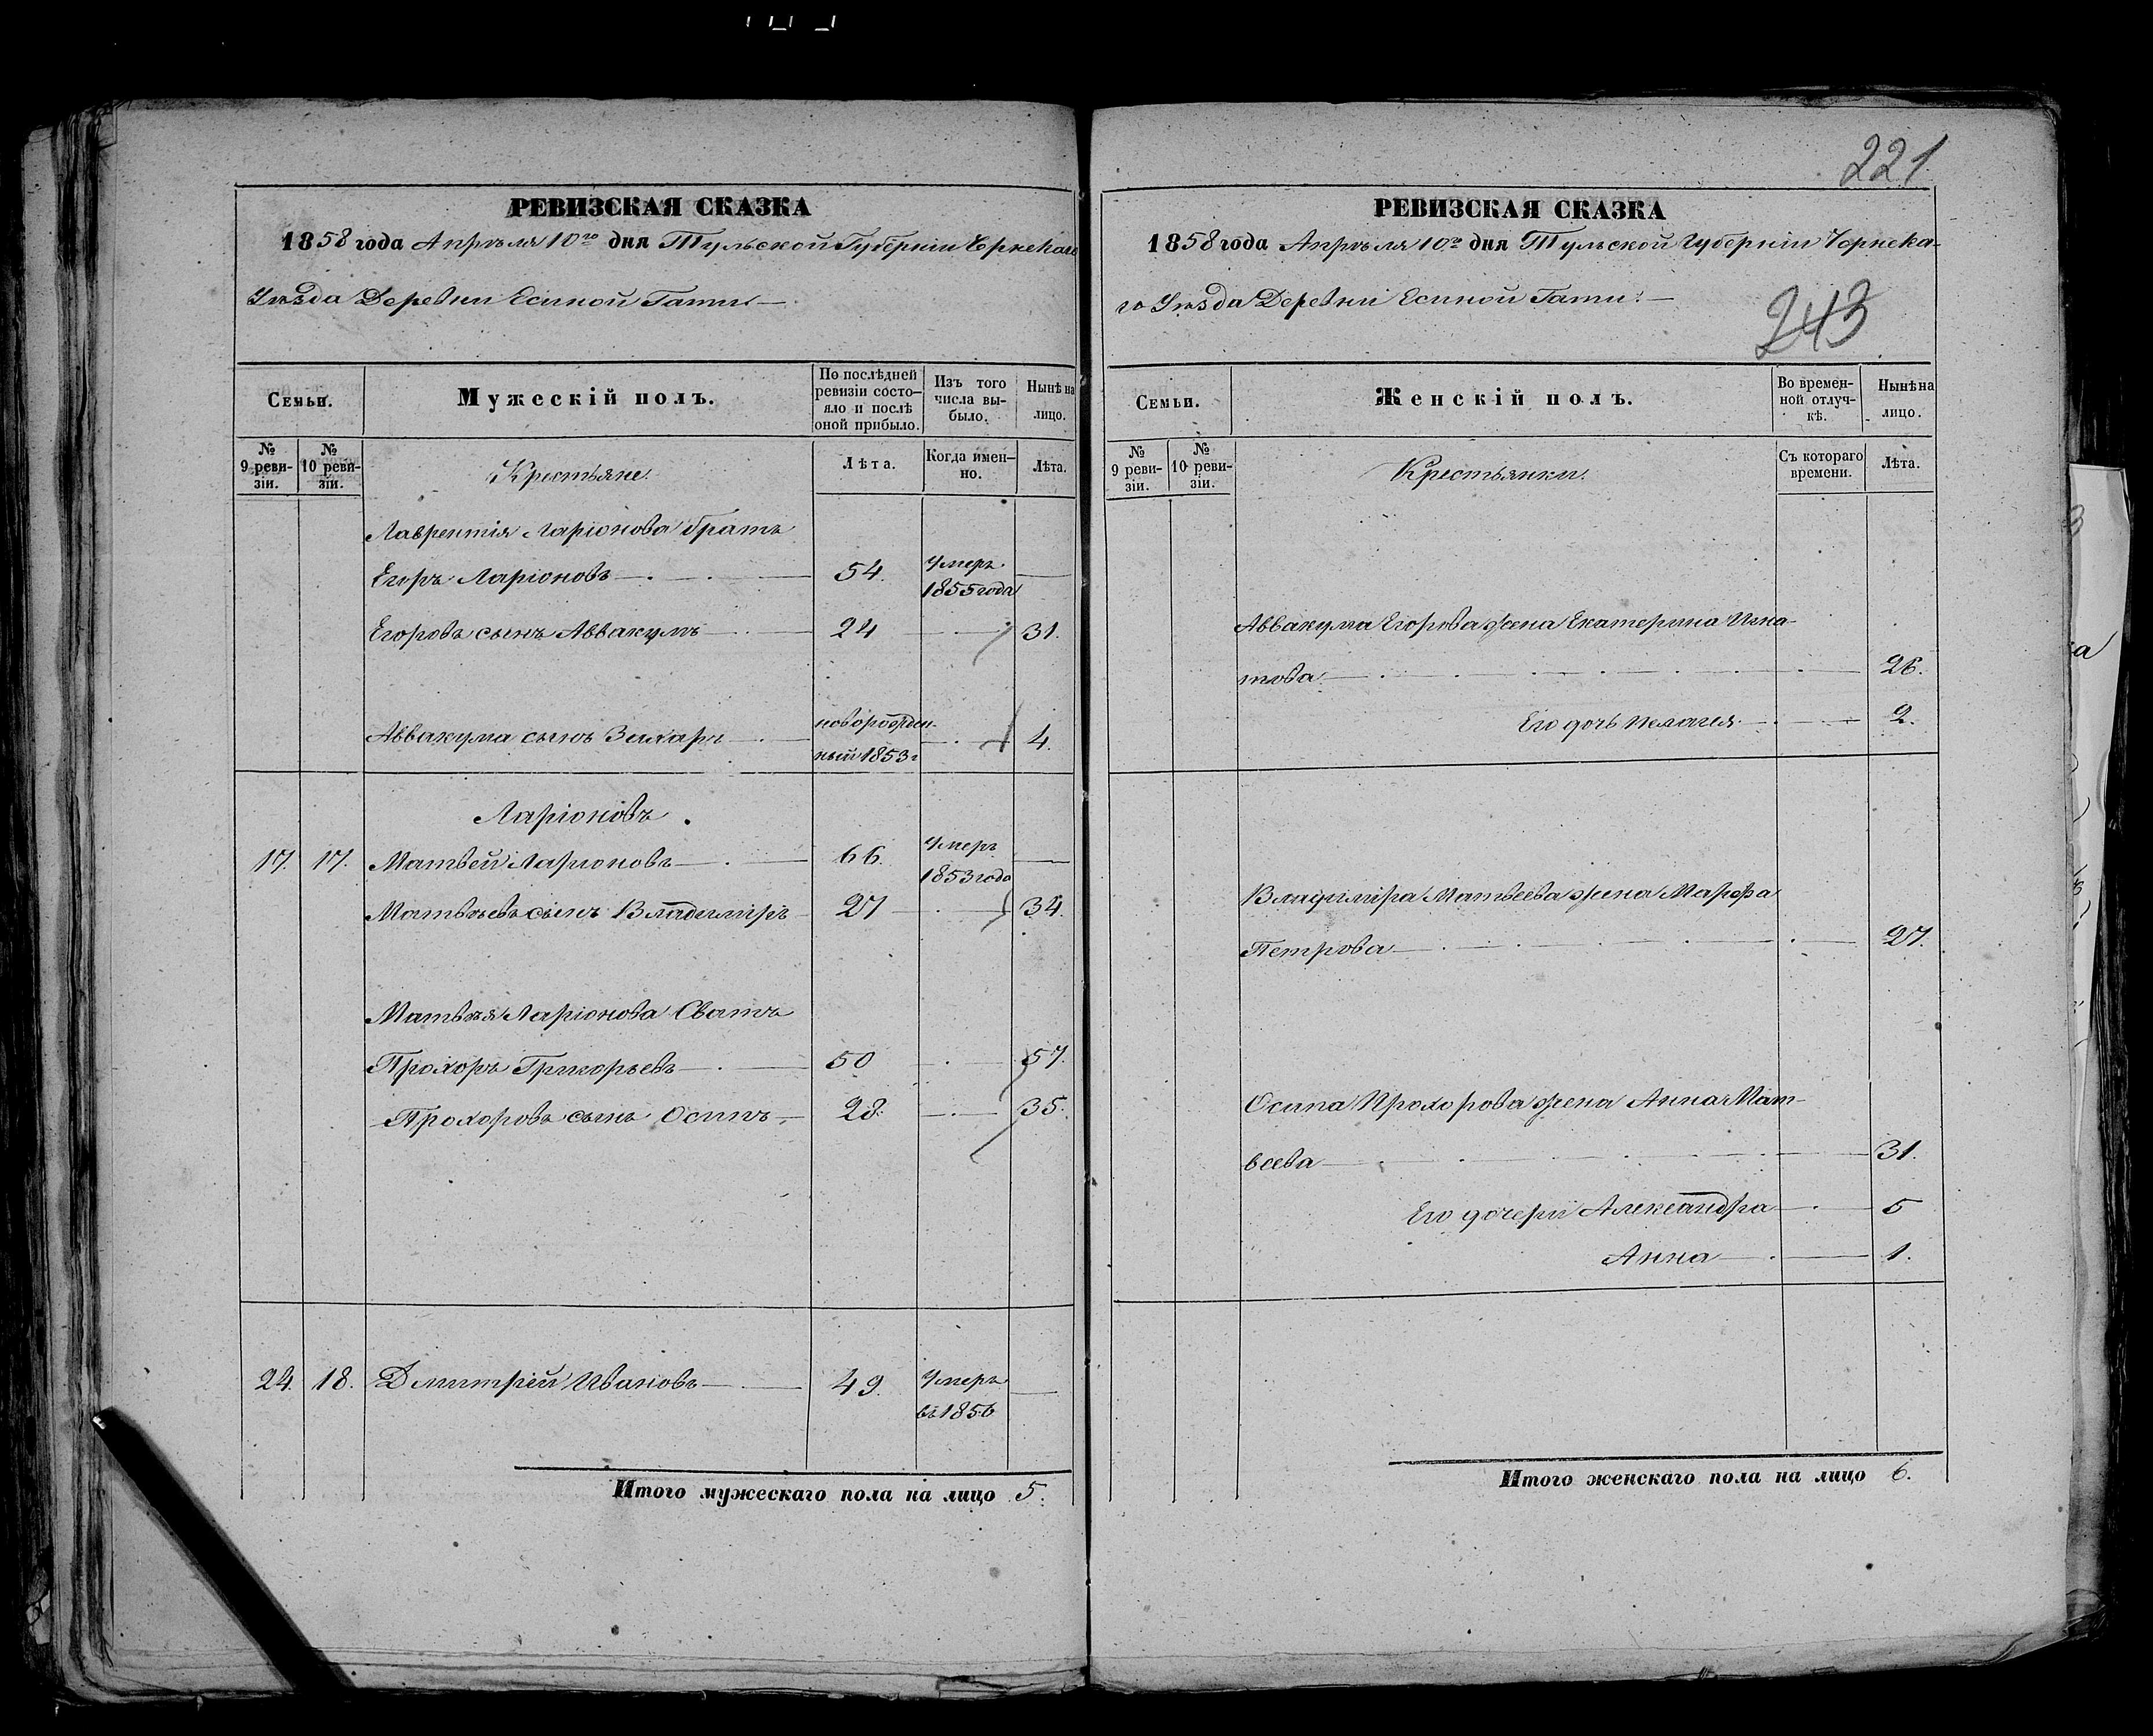 РЕВИЗСКАЯ СКАЗКА
1858 года Апрѣля 10го дня Тульской Губерніи Чернскаго
Уѣзда Деревни Есиной Гати
Семьи.
Мужескій полъ.
По послѣдней ревизіи состояло и послѣ оной прибыло.
Изъ того числа выбыло.
Нынѣ на лицо.
№ 9 ревизіи.
№ 10 ревизіи.
Крестьяне.
Лѣта.
Когда именно.
Лѣта.
Лаврентія Ларіонова братъ
Егоръ Ларіоновъ 54. Умеръ
1855 года
Егоровъ сынъ Аввакумъ 24 31.
новорожден-
Аввакума сынъ Захаръ 4.
ный 1853 г
Ларіоновъ
17. 17. Матвей Ларіоновъ 66. Умеръ
1853 года
Матвѣевъ сынъ Владиміръ 27 34.
Матвѣя Ларіонова Сватъ
Прохоръ Григорьевъ 50 57.
Прохоровъ сынъ Осипъ 28. 35.
24. 18. Дмитрій Ивановъ 49. Умеръ
въ 1856
Итого мужескаго пола на лицо 5.
221
РЕВИЗСКАЯ СКАЗКА
1858 года Апрѣля 10го дня Тульской Губерніи Чернска-
го Уѣзда Деревни Есиной Гати.
243
Семьи.
Женскій полъ.
Во времен-
ной отлуч-
кѣ.
Нынѣ на
лицо.
№ 9 ревизіи.
№ 10 ревизіи.
Крестьянки.
Съ котораго
времени.
Лѣта.
Аввакума Егорова жена Екатерина Игна-
това 26.
Его дочь Пелагея 2.
Владиміра Матвеева жена Марфа
Петрова 27.
Осипа Прохорова жена Анна Мат-
веева 31.
Его дочери Александра 5
Анна 1.
Итого женскаго пола на лицо 6.